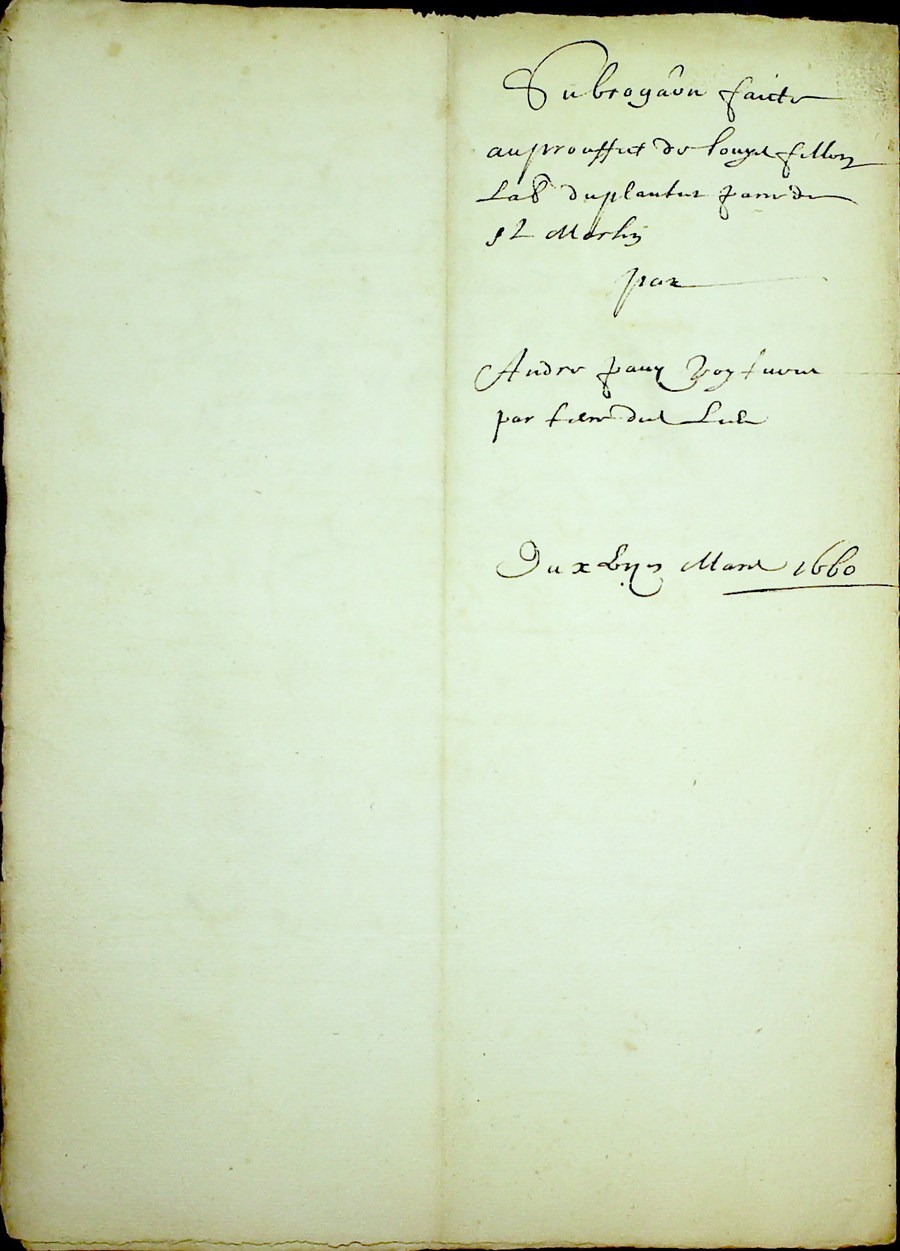 Subrogaon faicte
au prouffict de Louys fillon
Lab duplantier parr de
St Martin
par
Andre pauy Voyturier
par terre dud Lieu
Du xbije Mars 1660